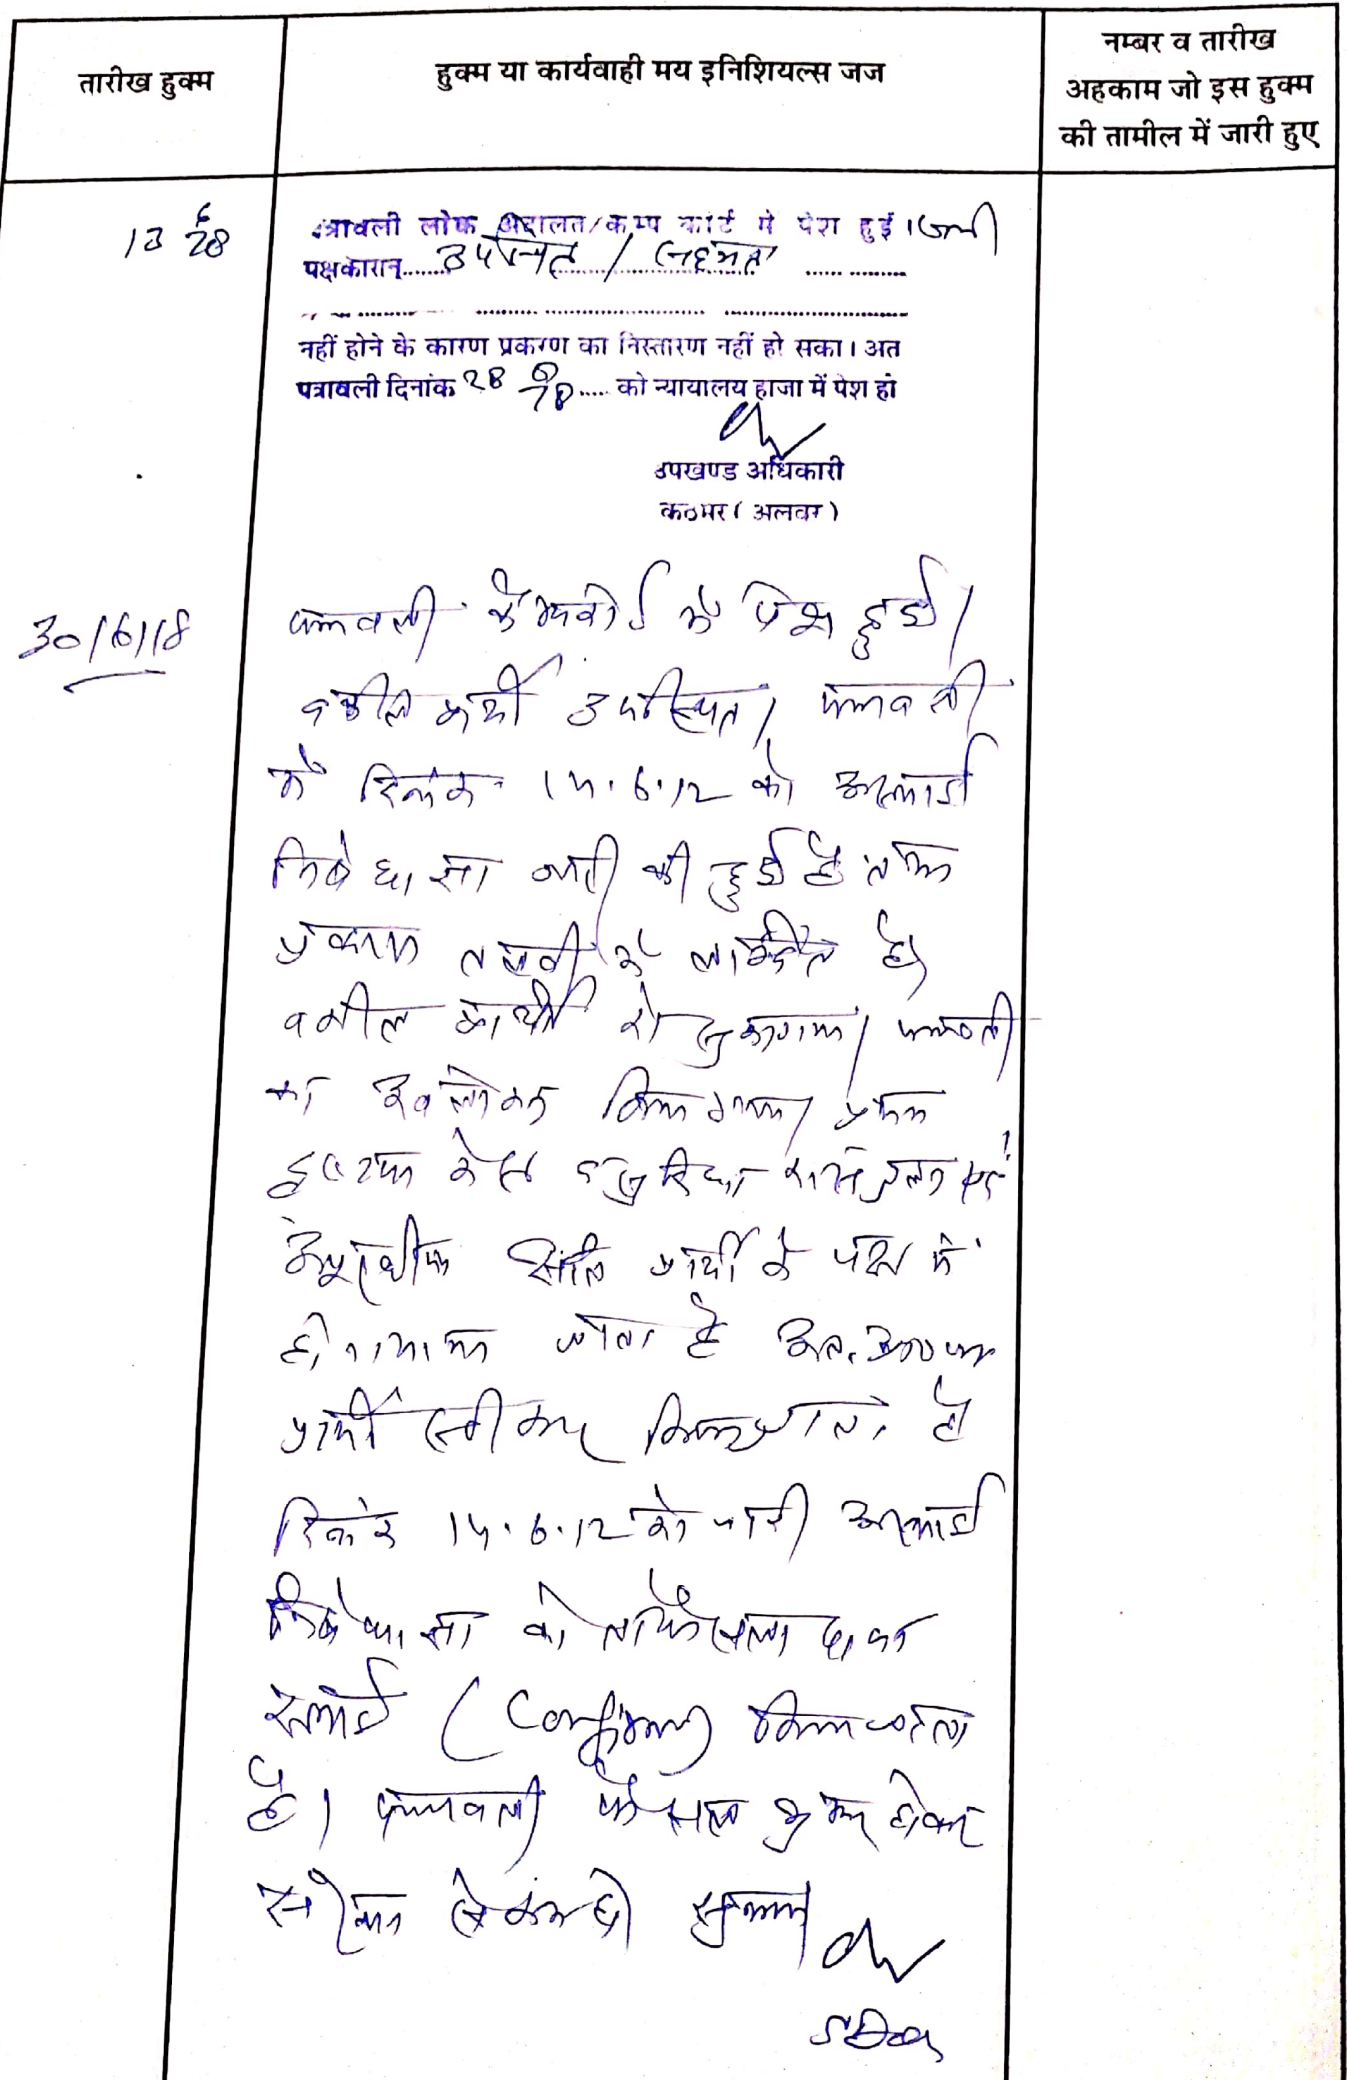 तारीख हुक्म
हुक्म या कार्यवाही मय इनिशियल्स जज
नम्बर व तारीख
अहकाम जो इस हुक्म
की तामील में जारी हुए
पत्रावली लोक अदालत/कैम्प कोर्ट मे पेश हुई।
पक्षकारान् उपस्थित / सहमत
नहीं होने के कारण प्रकरण का निस्तारण नहीं हो सका। अत
पत्रावली दिनांक 28 को न्यायालय हाजा में पेश हो
उपखण्ड अधिकारी
कठूमर (अलवर)
30/6/18
पत्रावली कैम्प कोर्ट में पेश हुई।
वकील प्रार्थी उपस्थित। पत्रावली
में दिनांक 14.6.12 को अस्थाई
निषेधाज्ञा जारी की हुई है
प्रकरण तलबी में
वकील प्रार्थी को सुना गया। पत्रावली
का अवलोकन किया गया। प्रथम
दृष्टया केस सुविधा का संतुलन एवं
अपूरणीय क्षति प्रार्थी के पक्ष में
होना पाया जाता है अतः
प्रार्थी स्वीकार किया जाता है
दिनांक 14.6.12 को जारी अस्थाई
निषेधाज्ञा को ताफैसला दावा
स्थाई (Confirm) किया जाता
है। पत्रावली फैसल शुमार होकर
SDO